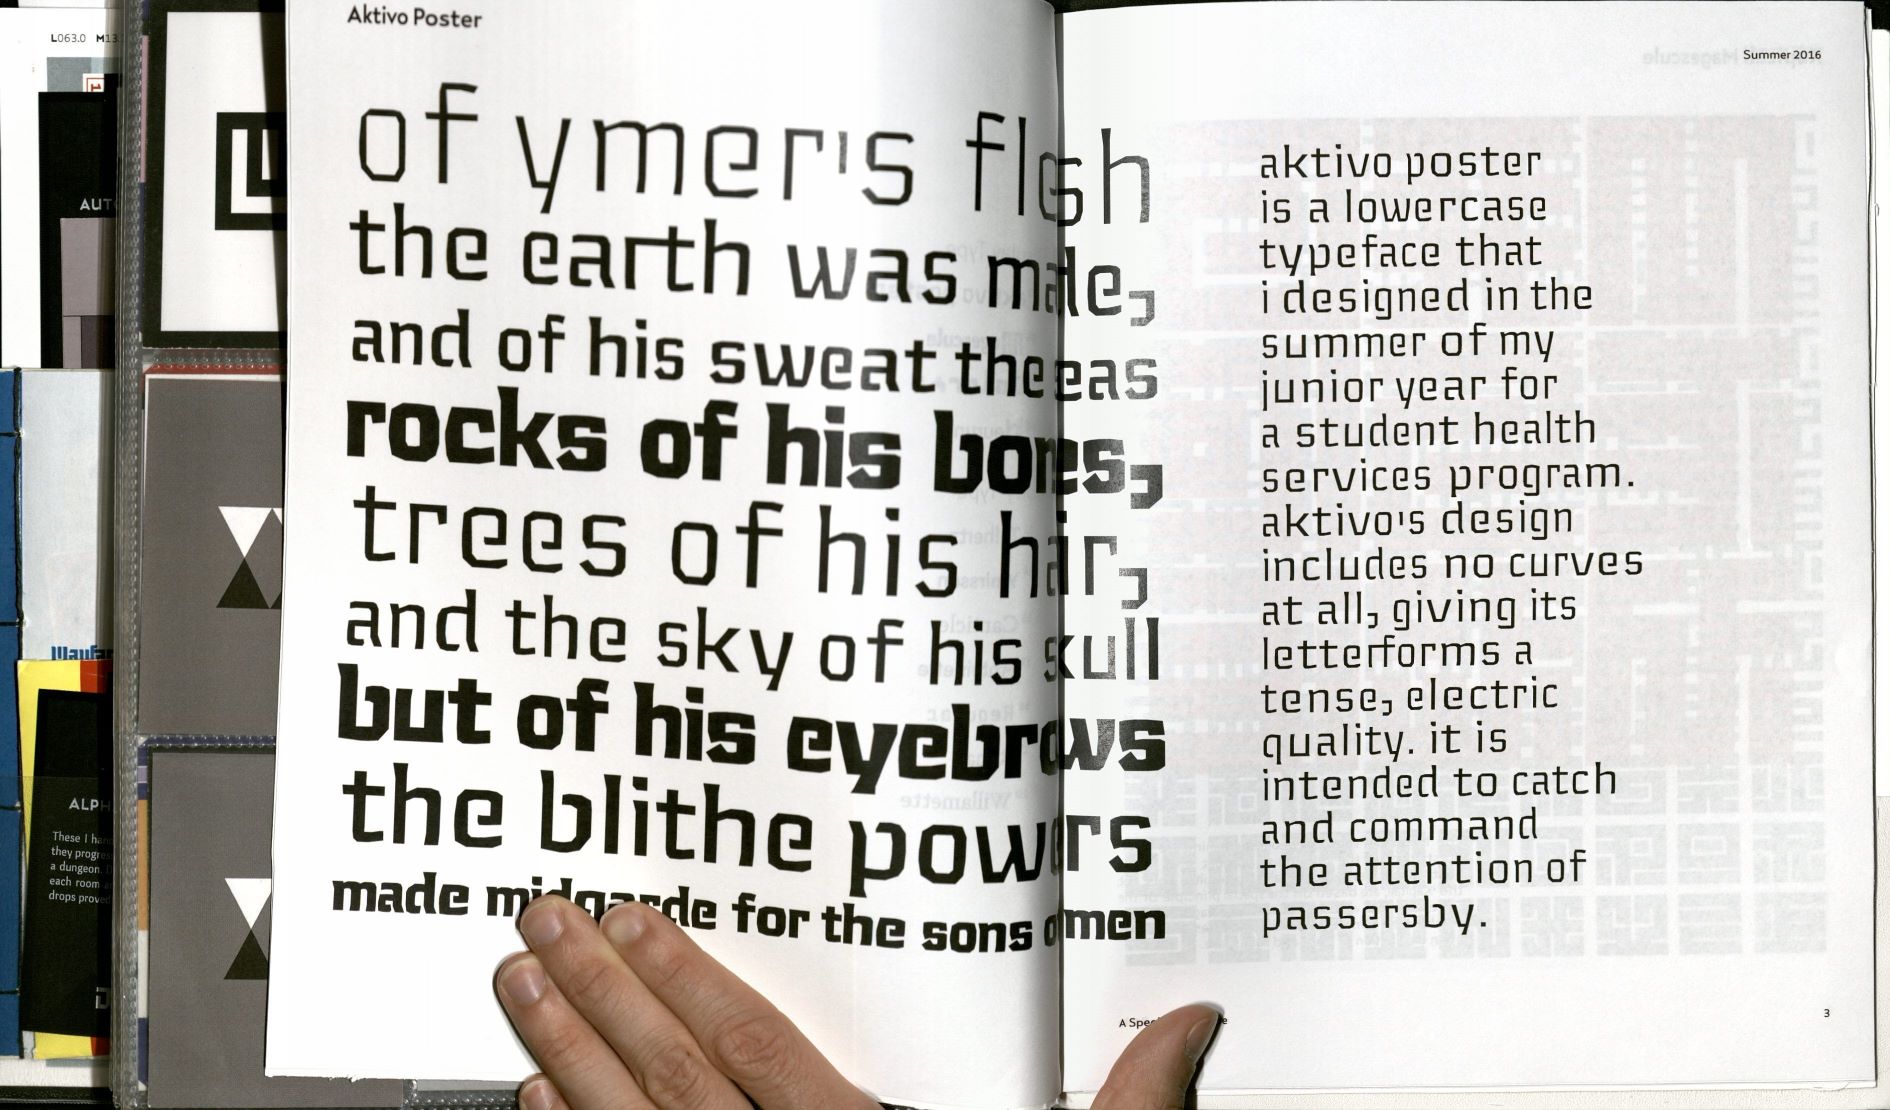 L063.0
AUT
ALPH
These I
they
a dungeon.
each room
drops
Aktivo Poster
of ymer's flesh
the earth was made,
and of his sweat the seas
rocks of his bones,
trees of his hair,
and the sky of his skull
but of his eyebrows
the blithe powers
made midgarde for the sons of men
Summer 2016
aktivo poster
is a lowercase
typeface that
i designed in the
summer of my
junior year for
a student health
services program.
aktivo's design
includes no curves
at all, giving its
letterforms a
tense, electric
quality. it is
intended to catch
and command
the attention of
passersby.
A
3